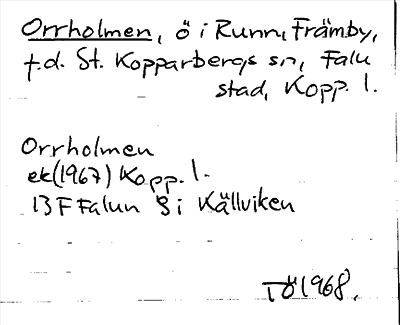 Orrholmen, ö i Runn, Främby,
f.d. St. Kopparbergs sn, Falu
stad, Kopp. l.
Orrholmen
ek(1967) Kopp. l.
13F Falun S i Källviken
TÖ 1968.